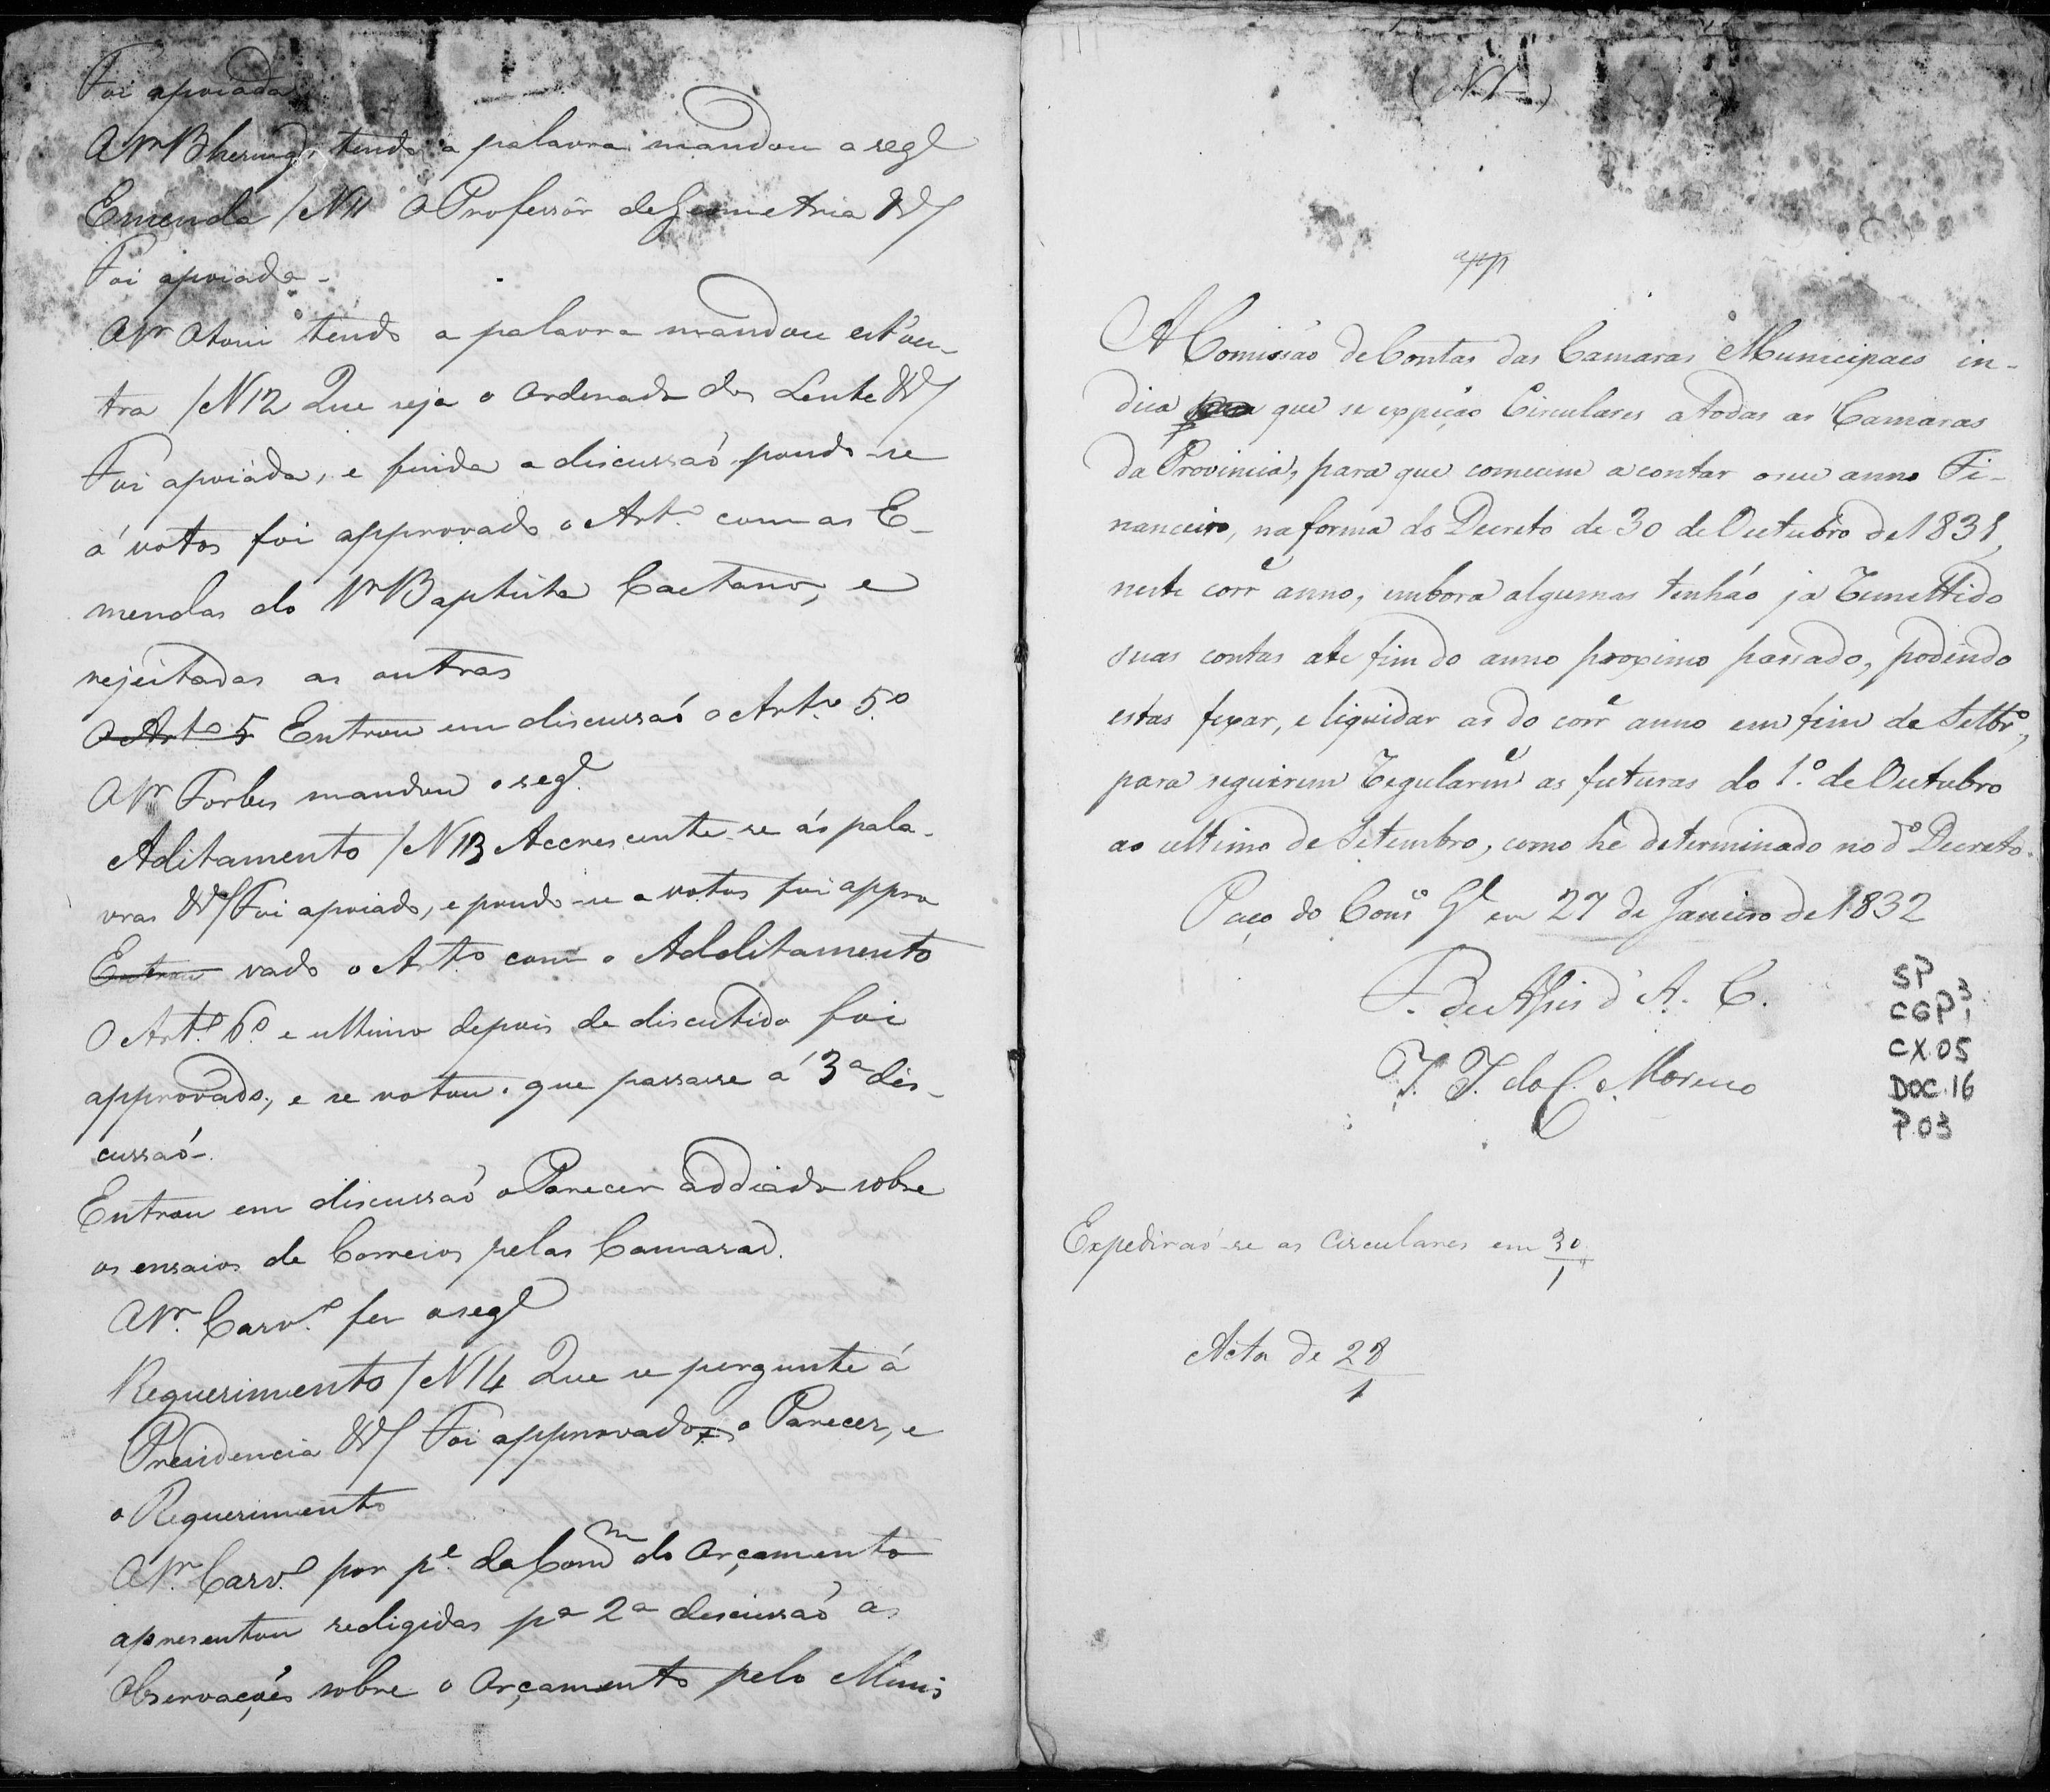 Foi apoiada
O Sr Bhering, tendo a palavra mandou a sege
Emenda /N 11 O Professôr de Geometria &/
Foi apoiada -
O Sr Otoni tendo a palavra mandou est'ou-
tra /N 12 Que seja o Ordenado do Lente &/
Foi apoiada, e finda a discussaó pondo-se
á votos foi approvado o Art.o com as E-
mendas do Sr Baptista Caetano, e
rejeitadas as outras
O Art.o 5 Entrou em discussaó o Art.o 5.o
O Sr Forbes mandou o sege
Aditamento /N 13 Accrescente-se ás pala-
vras &/ Foi apoiado, e pondo-se a votos foi appro
Entrou vado o Arto com o Additamento
O Art.o 6.o e ultimo depois de discutido foi
approvado, e se votou que passasse á 3a dis-
cussaó-.
Entrou em discussaó o Parecer addiado sobre
os ensaios de Correios pelas Camaras.
O Sr. Carv.o fez o sege
Requerimento /N 14 Que se pergunte á
Presidencia &/ Foi approvado o Parecer, e
o Requerimento
O Sr. Carv.o por pe. da Comm do Orçamento
apresentou redigidas pa 2a discussaó as
Observaçoẽs sobre o Orçamento pelo Minis
(N. 1)
app
A Comissão de Contas das Camaras Municipaes in-
dica que se expeção Circulares a todas as Camaras
da Provincia, para que comecem a contar o seu anno Fi-
nanceiro, na forma do Decreto de 30 de Outubro de 1831,
neste corre anno, embora algumas tenhão ja remettido
suas contas até fim do anno proximo passado, podendo
estas fexar, e liquidar as do corre anno em fim de Setbro,
para seguirem regularme as futuras do 1.o de Outubro
ao ultimo de Setembro, como he determinado no do Decreto.
Paço do Conso Gl em 27 de Janeiro de 1832
F. de Assis d'A. C.
J. J. do C. Moreno
SP
CGP3.1
CX.05
DOC.16
P.03
Expediraó-se as Circulares em 30/1
Acta de 28/1